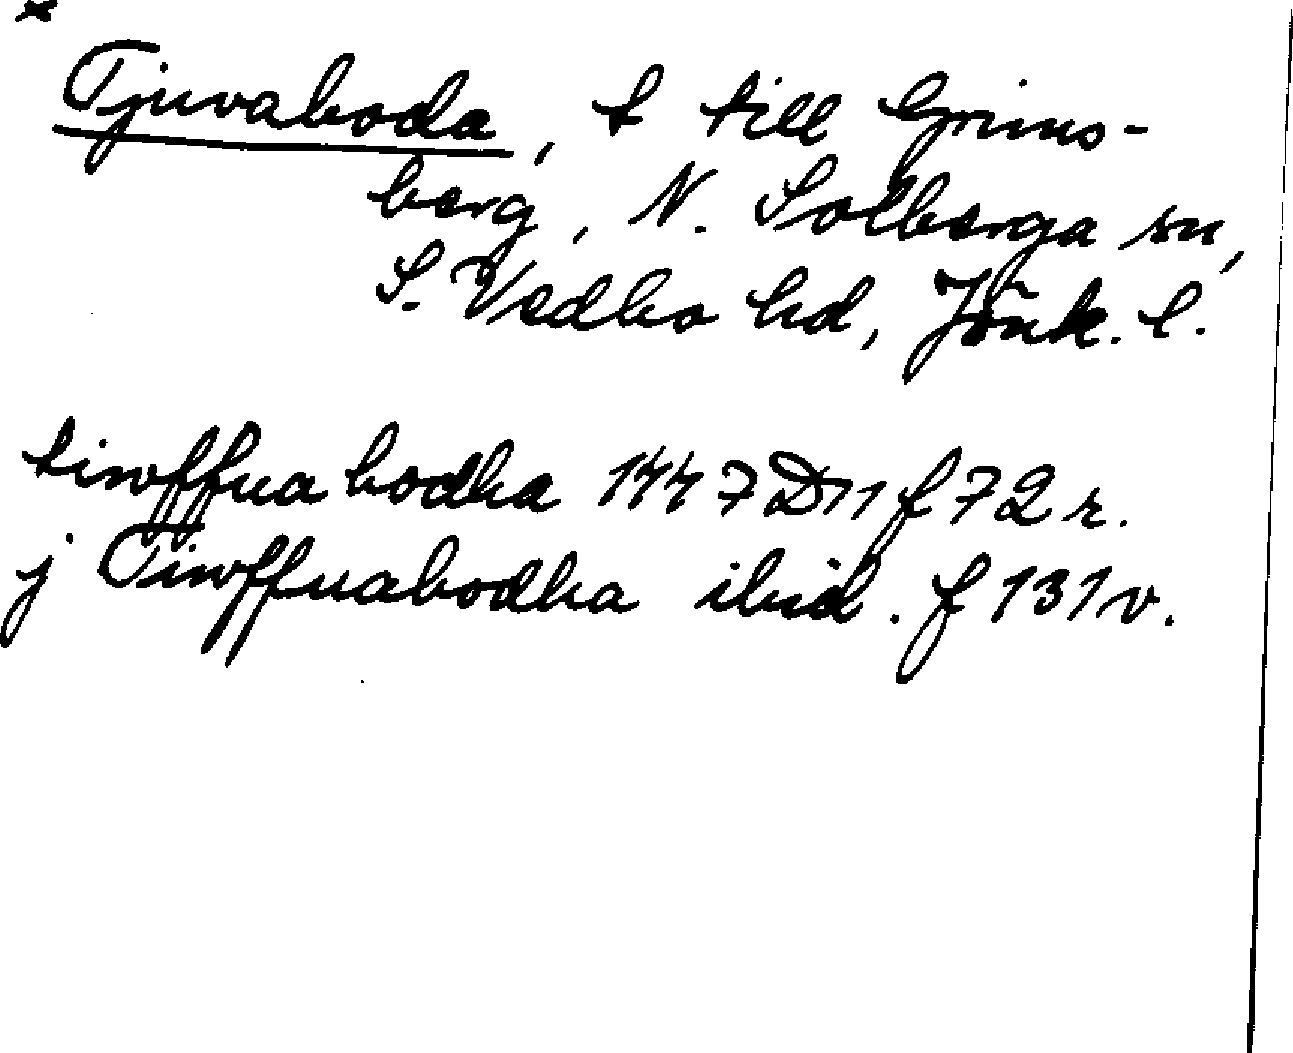 ×
Tjuvaboda, t till Grims-
berg, N. Solberga sn,
S. Vedbo hd, Jönk. l.
tiwffua bodha 1447 D11 f 72 r.
j Tiwffuabodha ibid. f 131 v.